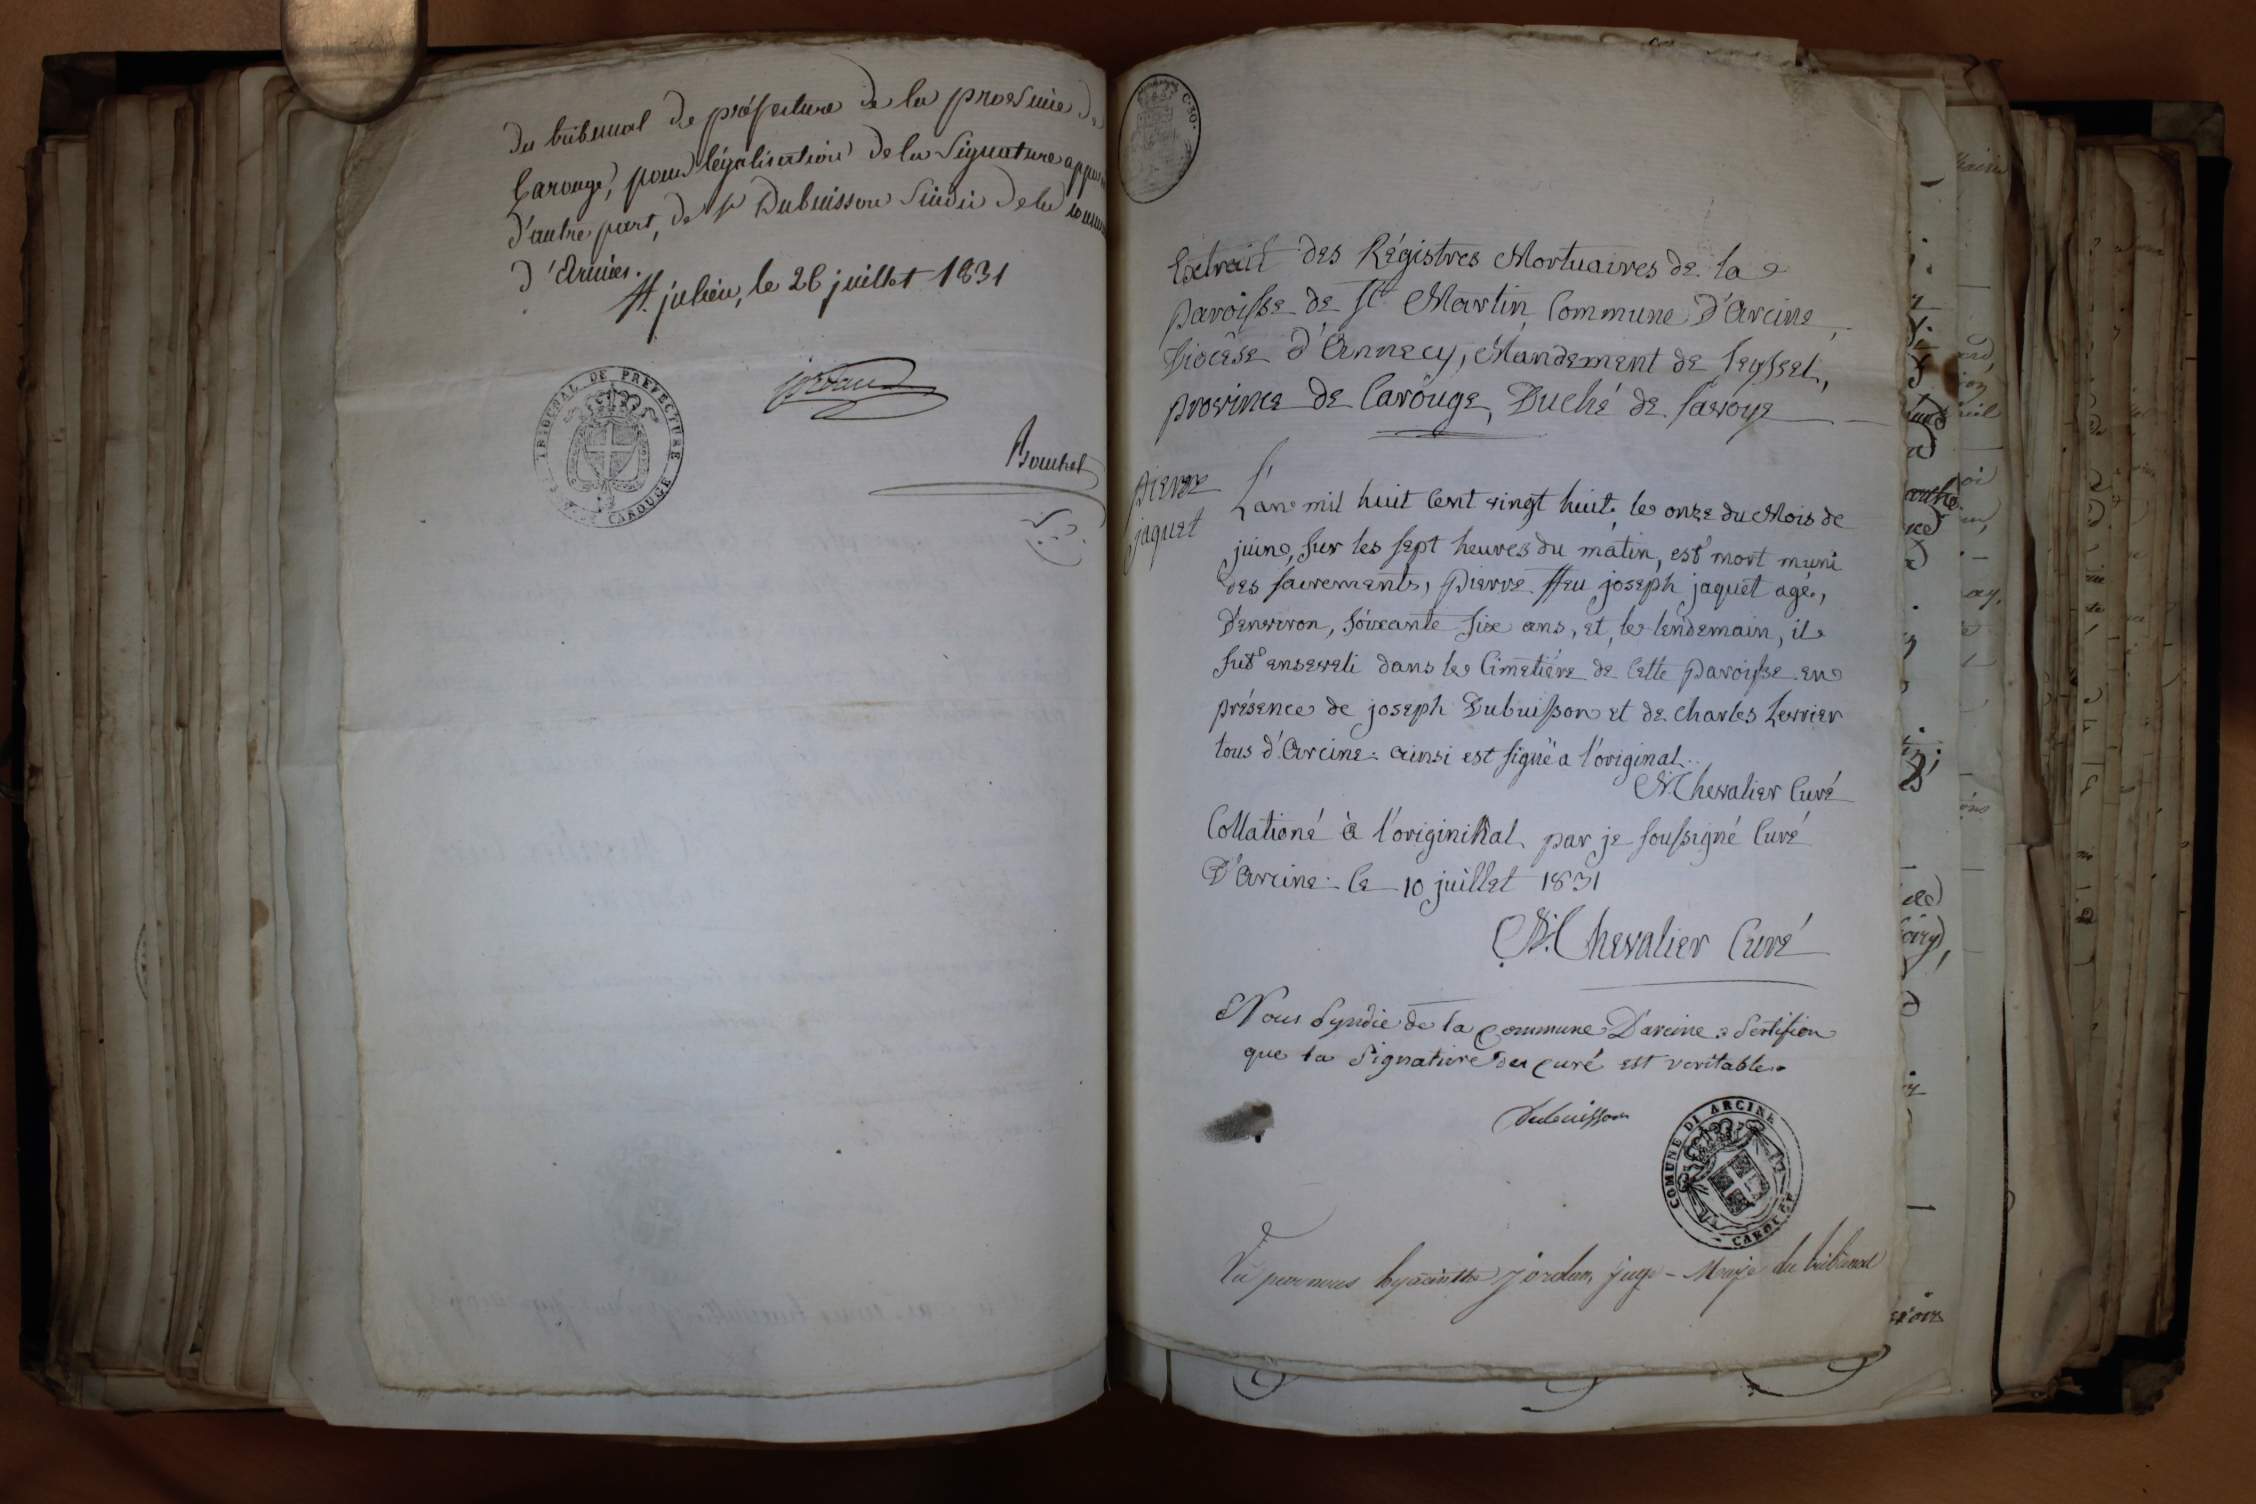 du tribunal de préfecture de la province de
Carouge, pour légalisation de la Signature
d'autre part, de Sr Dubuisson Sindic de la
d'Arcine.
St. julien, le 26 juillet 1831
TRIBUNAL DE PREFECTURE
CAROUGE
C.30.
Extrait des Régistres Mortuaires de la
paroisse de St Martin Commune D'arcine,
Diocèse d'Annecy, Mandement de Seyssel,
province de Carouge, Duché de Savoye
pierre
jaquet
L'an mil huit Cent vingt huit, le onze du Mois de
juin, sur les sept heures du matin, est mort muni
des sacrements, pierre ffeu joseph jaquet agé,
D'environ, soixante six ans, et, le lendemain, il
fut enseveli dans le Cimetière de Cette paroisse en
présence de joseph Dubuisson et de Charles Lerrier
tous d'Arcine. ainsi est signé a l'original..
N. Chevalier Curé
Collationé à l'original par je soussigné Curé
D'Arcine. le 10 juillet 1831
N. Chevalier Curé
Nous Syndic de la Commune D'arcine: Sertifion
que la Signature du curé est veritable.
Dubuisson
COMUNE DI ARCINE
CAROUGE
Vu par nous hyacinthe jordan, juge-Maje du tribunal